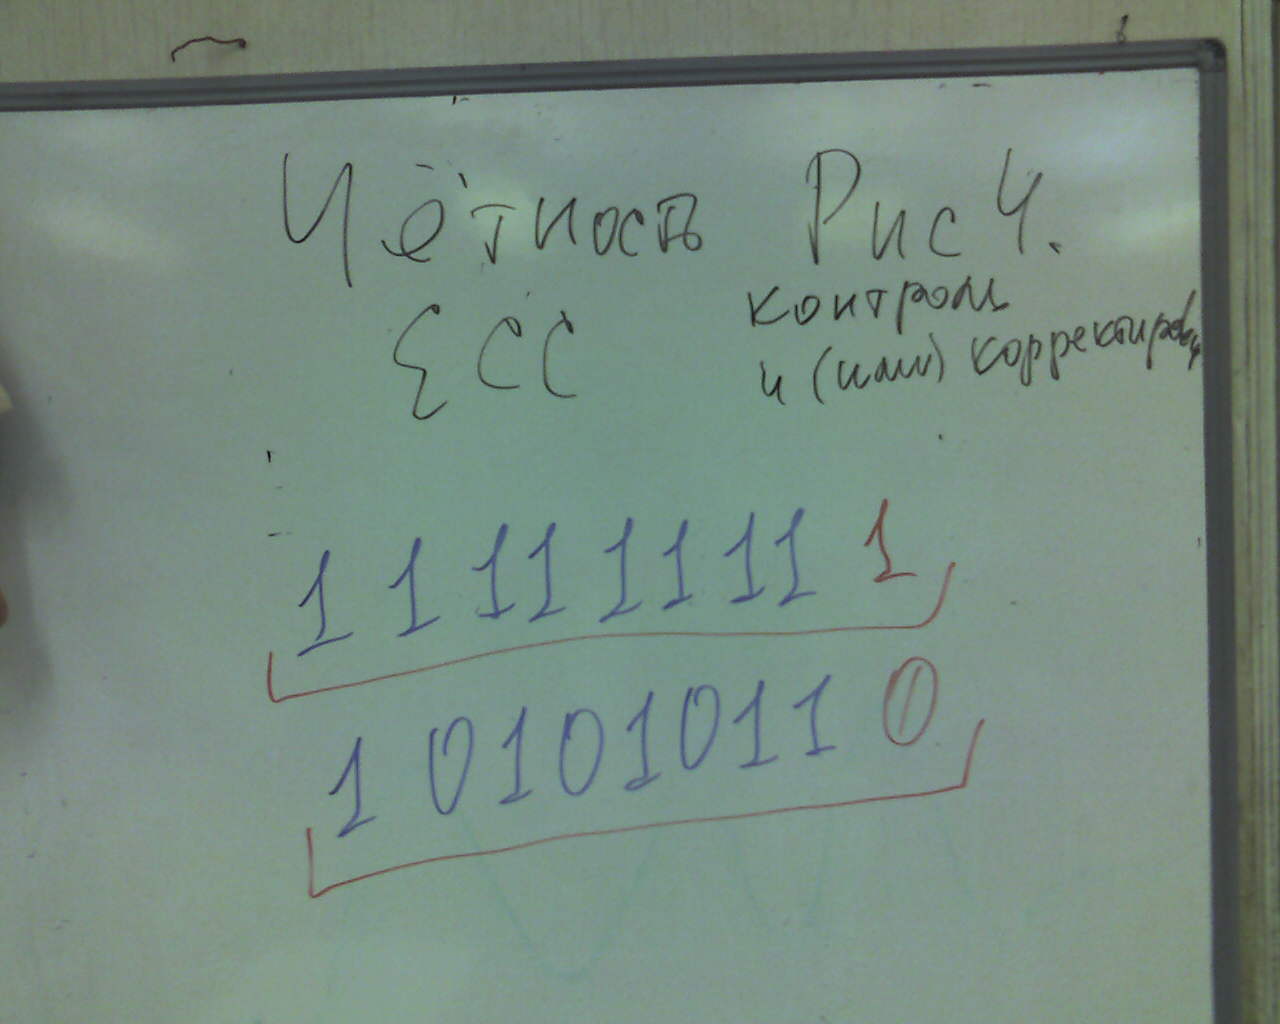 Чётность Рис 4.
ECC
контроль
и (или) корректировка
1 1 1 1 1 1 1 1 1
1 0 1 0 1 0 1 1 0